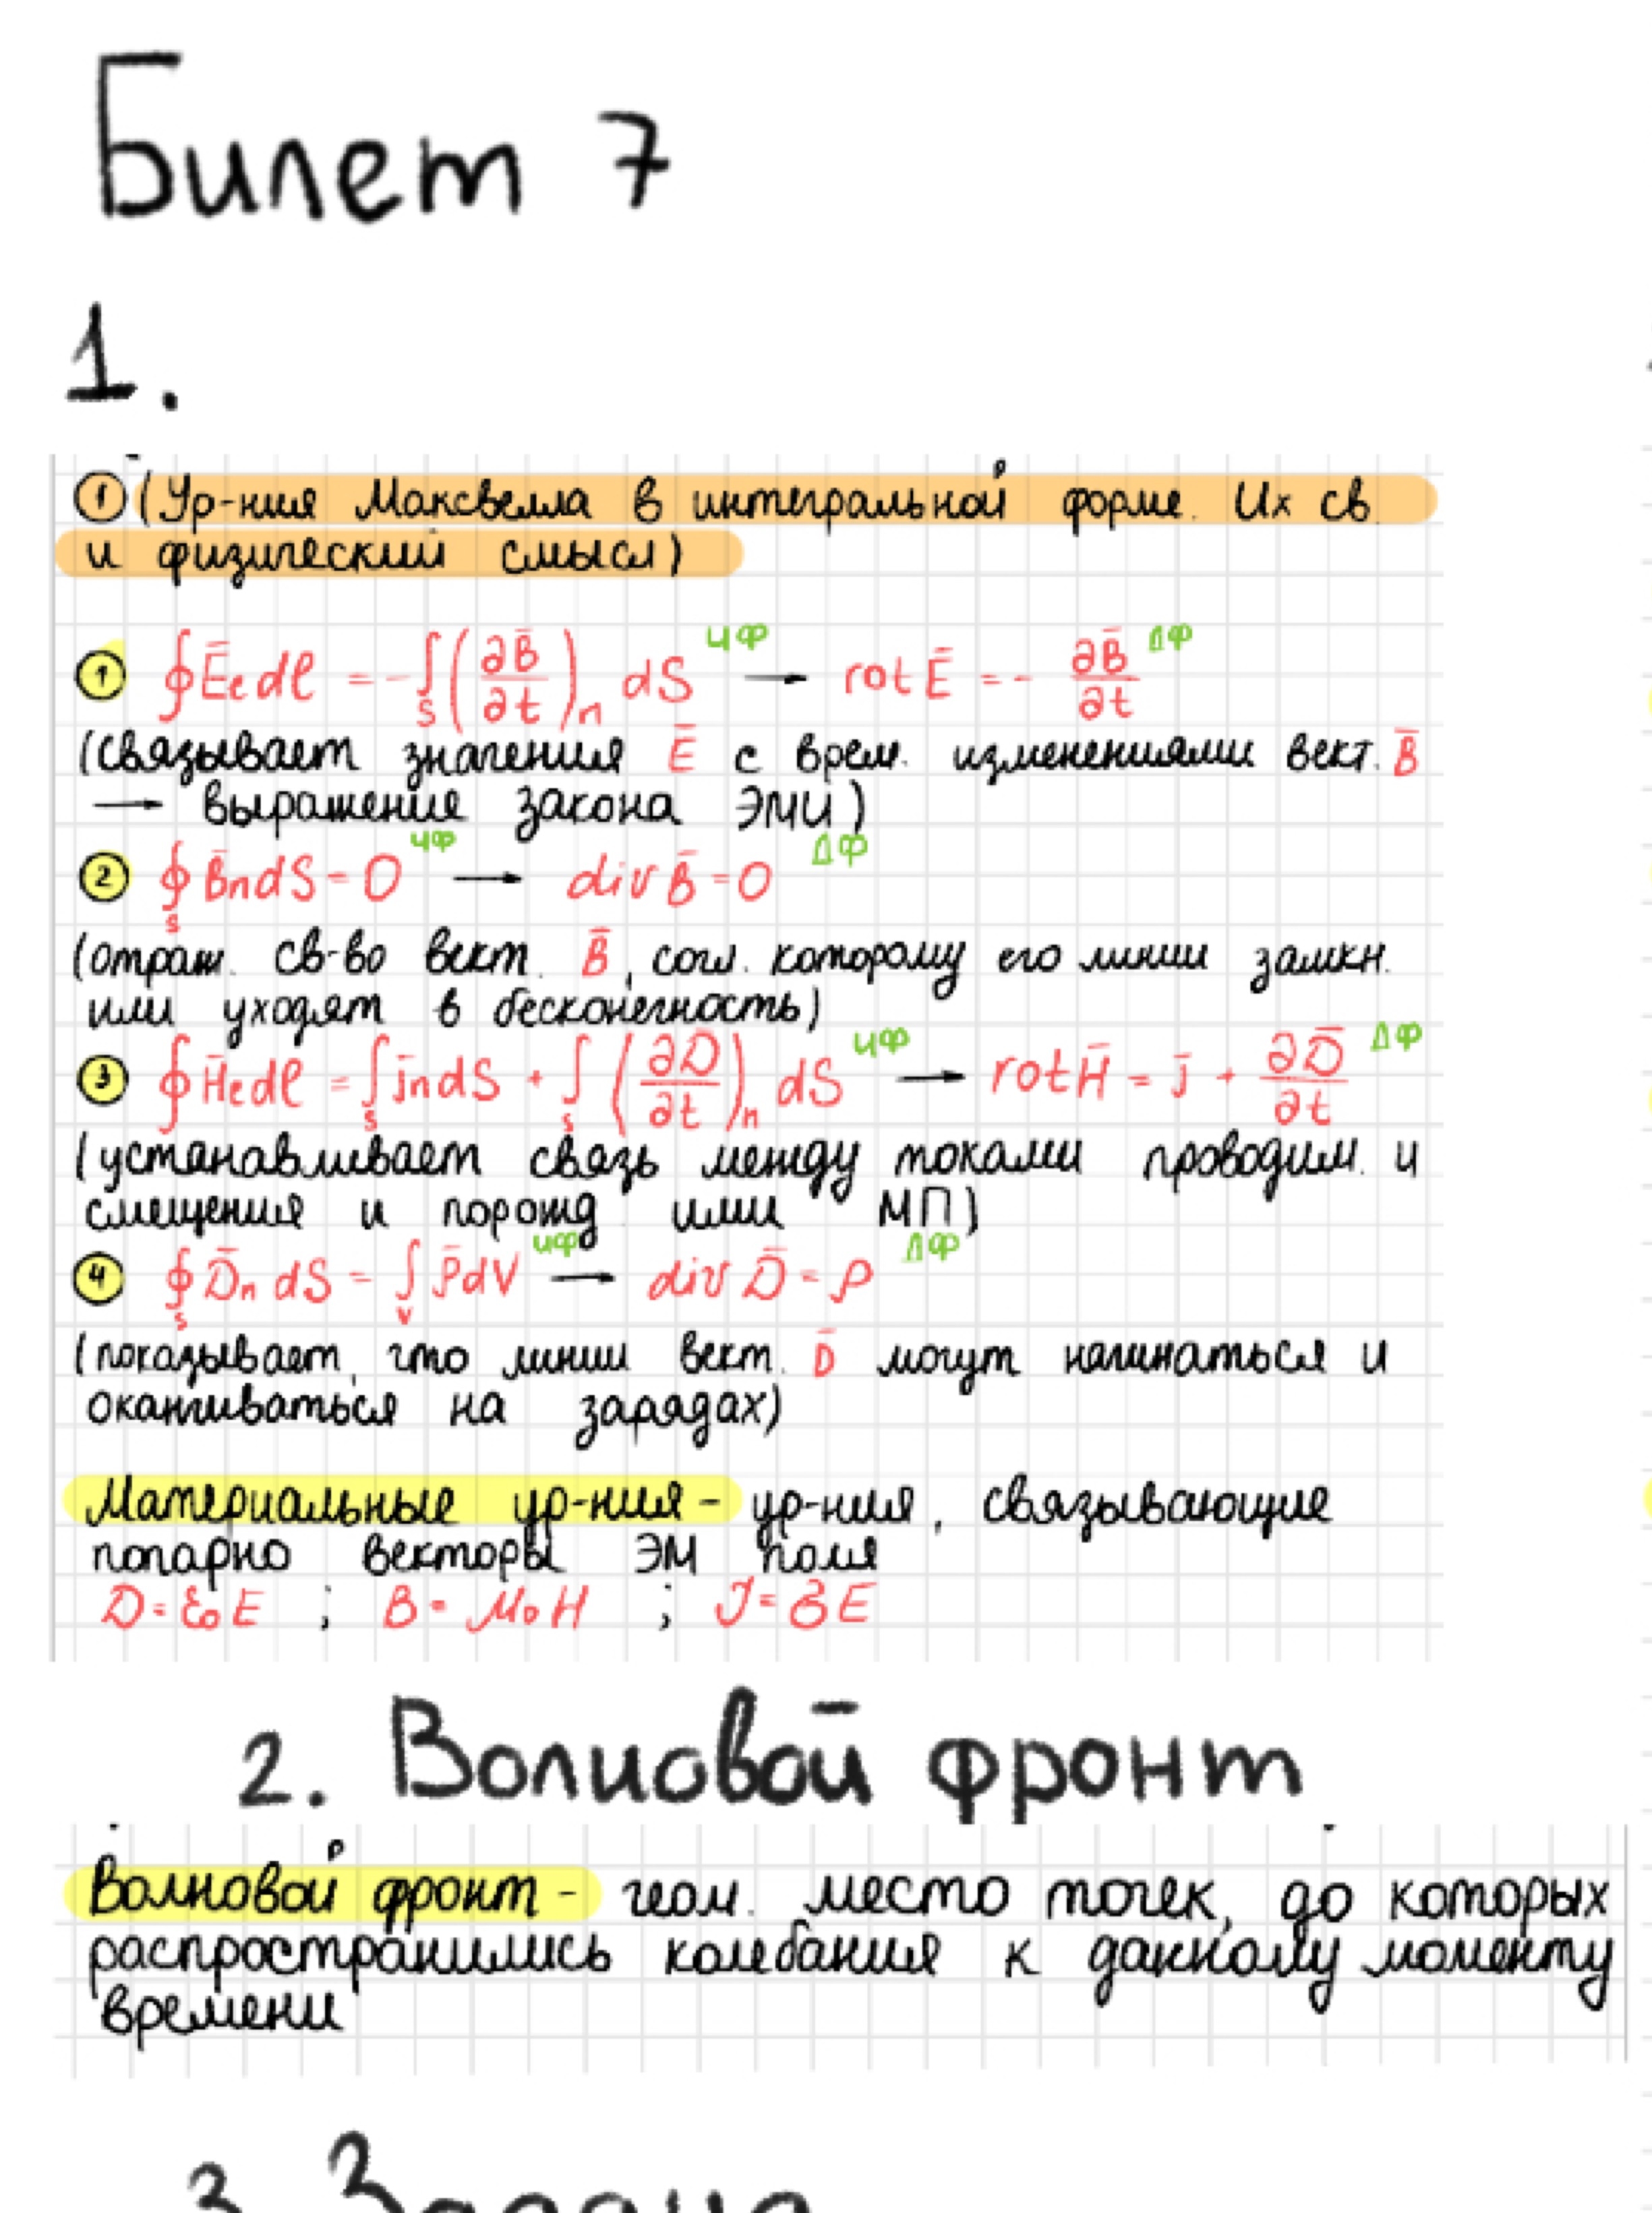 Билет 7
1.
① (Ур-ния Максвелла в интегральной форме. Их св.
и физический смысл)
① ∮E̅ₑdℓ = -∫s(∂B̅/∂t)n dS ИФ → rot E̅ = - ∂B̅/∂t ДФ
(связывает значения E̅ с врем. изменениями вект. B̅
→ выражение закона ЭМИ)
② ∮s B̅ndS = 0 ИФ → div B̅ = 0 ДФ
(отраж. св-во вект. B̅, согл. которому его линии замкн.
или уходят в бесконечность)
③ ∮H̅ₑdℓ = ∫s j̅ndS + ∫s (∂D̅/∂t)n dS ИФ → rot H̅ = j̅ + ∂D̅/∂t ДФ
(устанавливает связь между токами проводим. и
смещения и порожд. ими МП)
④ ∮s D̅n dS = ∫v ρ̅dV ИФ → div D̅ = ρ ДФ
(показывает, что линии вект. D̅ могут начинаться и
оканчиваться на зарядах)
Материальные ур-ния - ур-ния, связывающие
попарно векторы ЭМ поля
D = ε₀E ; B = μ₀H ; J = ƂE
2. Волновой фронт
Волновой фронт - геом. место точек, до которых
распространились колебания к данному моменту
времени
3. Задача